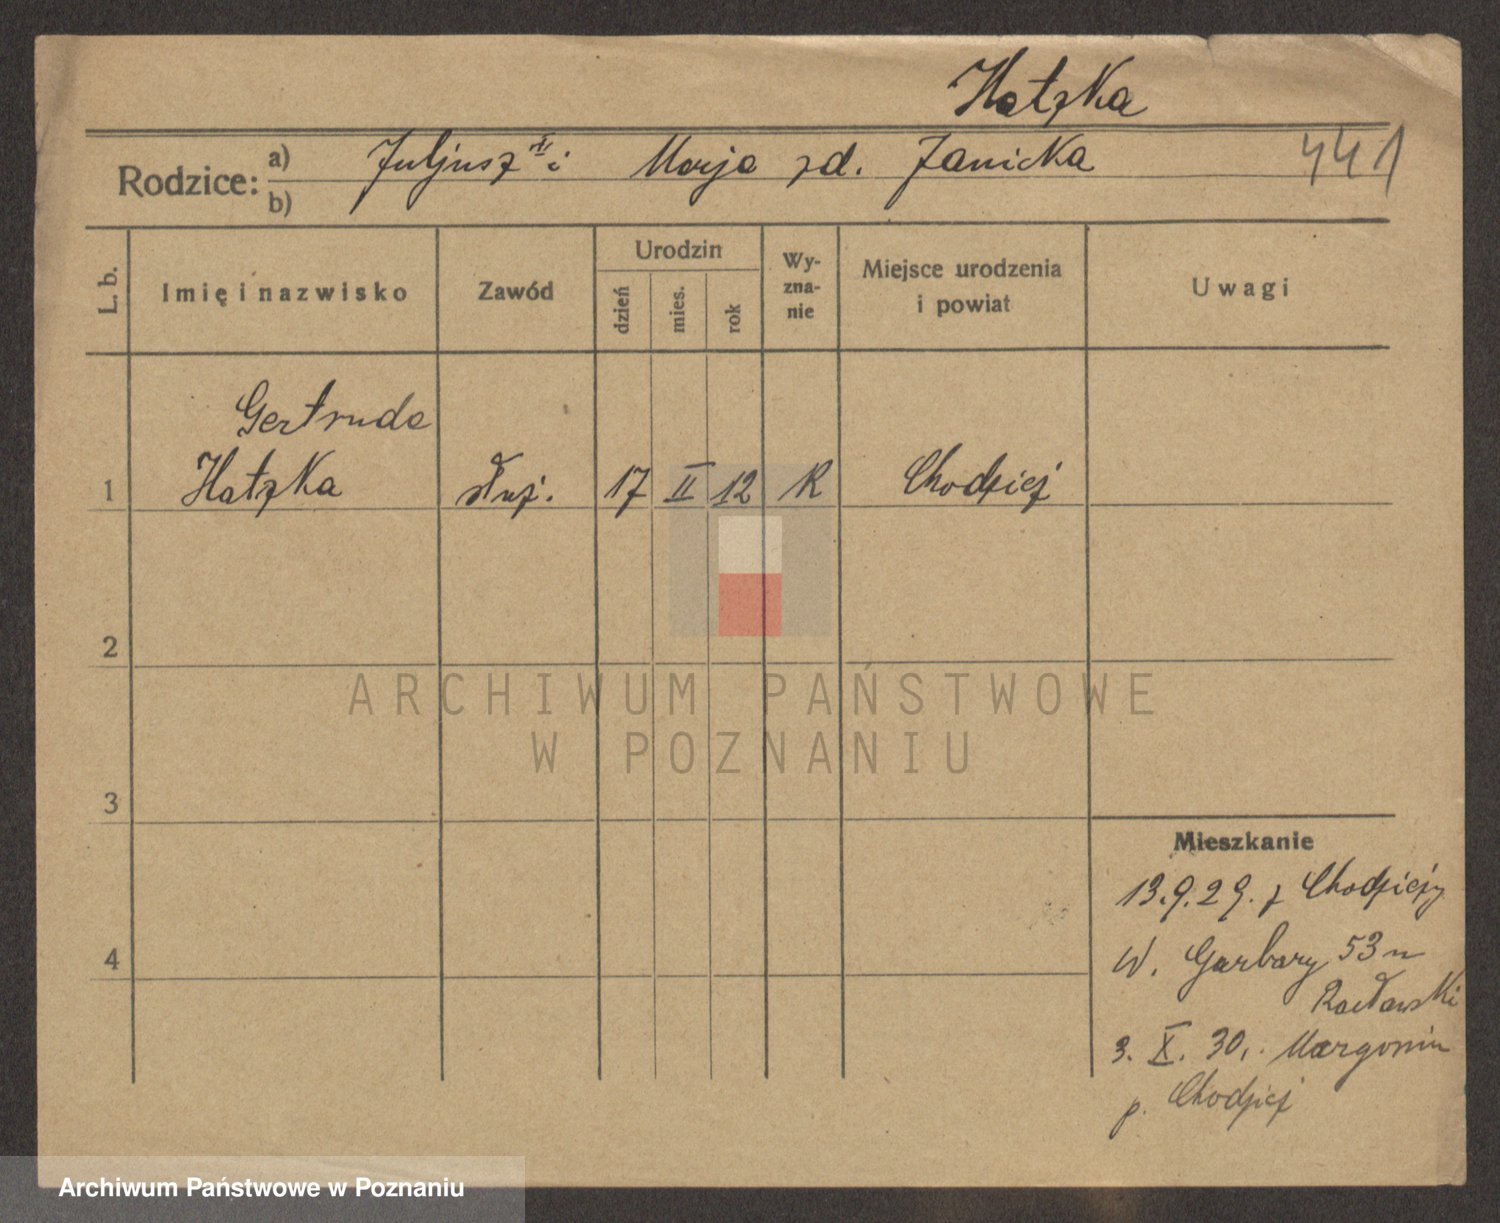 Hatzka
Rodzice: a) Juljusz i Marja zd. Janicka 441
b)
L. b. Imię i nazwisko Zawód Urodzin dzień mies. rok Wy-zna-nie Miejsce urodzenia i powiat Uwagi
Gertruda
1 Hatzka służ. 17 II 12 R Chodzież
2
ARCHIWUM PAŃSTWOWE
W POZNANIU
3
Mieszkanie
13.9.29. z Chodzieży
W. Garbary 53 u
Racławski
4
3. X. 30. Margonin
p. Chodzież
Archiwum Państwowe w Poznaniu